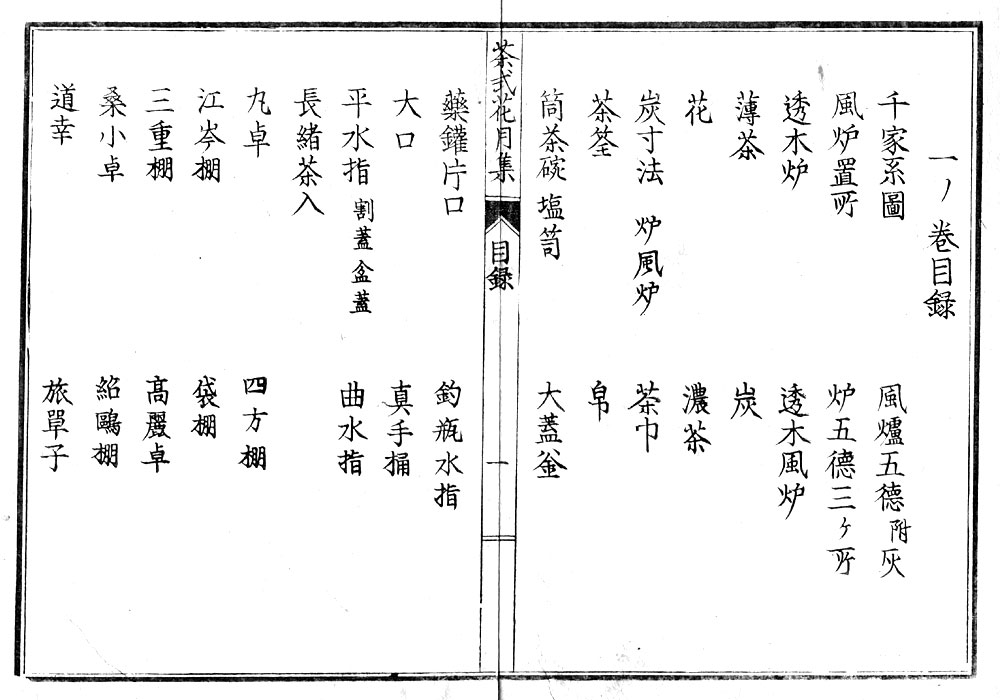 一ノ巻目録
千家系圖 風爐五徳 附灰
風炉置所 炉五徳三ケ所
透木炉 透木風炉
薄茶 炭
花 濃茶
炭寸法 炉風炉 茶巾
茶筌 帛
筒茶碗 塩笥 大蓋釜
茶式花月集 目録 一
藥鑵片口 釣瓶水指
大口 真手桶
平水指 割蓋盆蓋 曲水指
長緒茶入
九卓 四方棚
江岑棚 袋棚
三重棚 高麗卓
桑小卓 紹鷗棚
道幸 旅單子